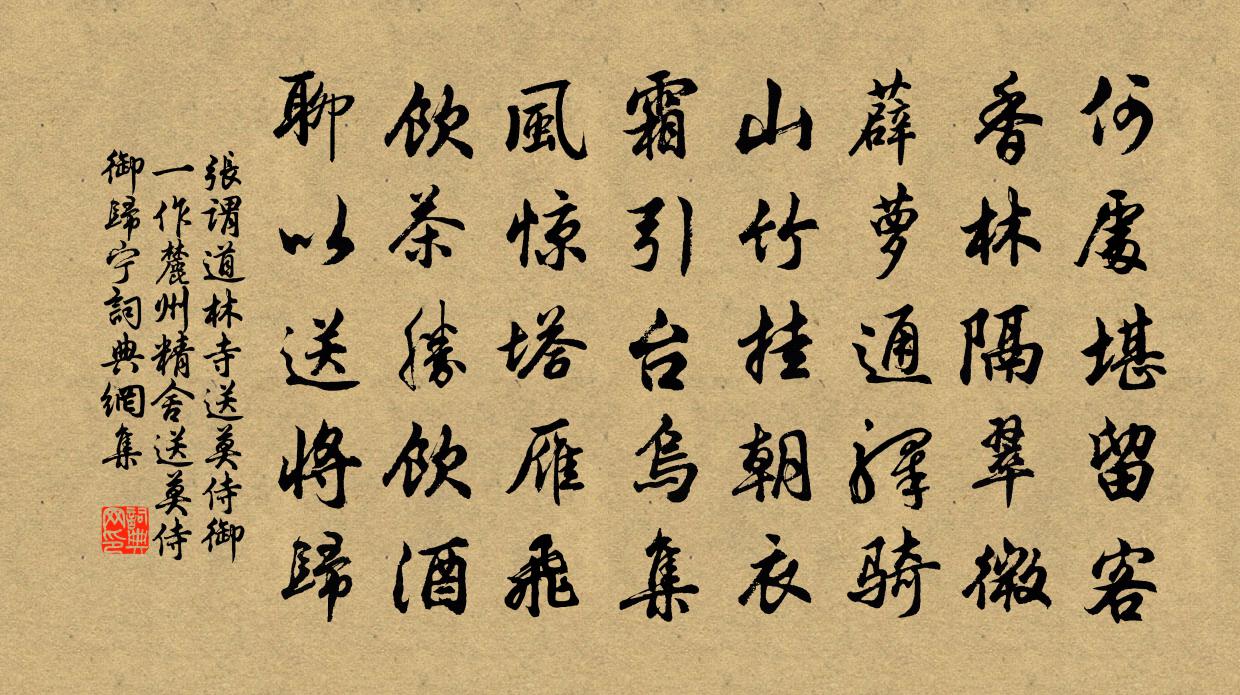 何處堪留客
香林隔翠微
薜萝通驛骑
山竹挂朝衣
霜引台烏集
風惊塔雁飛
飲茶勝飲酒
聊以送將歸
張謂道林寺送莫侍御
一作麓州精舍送莫侍
御歸宁詞典網集
詞典
网印